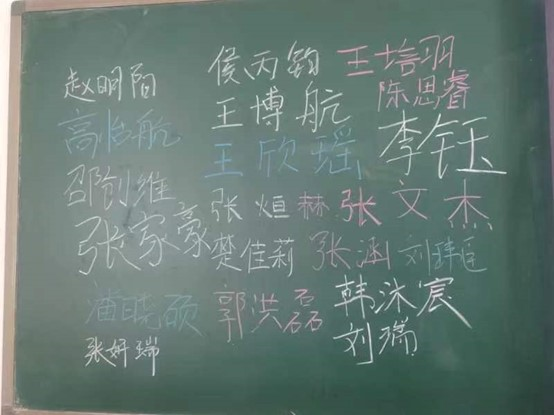 赵明阳
侯丙钧
王培羽
陈思睿
高临航
王博航
李钰
邵创维
王欣瑶
张家豪
张烜赫
张文杰
楚佳莉
张涵
潘晓硕
郭洪磊
韩沐宸
张妍瑞
刘瑞